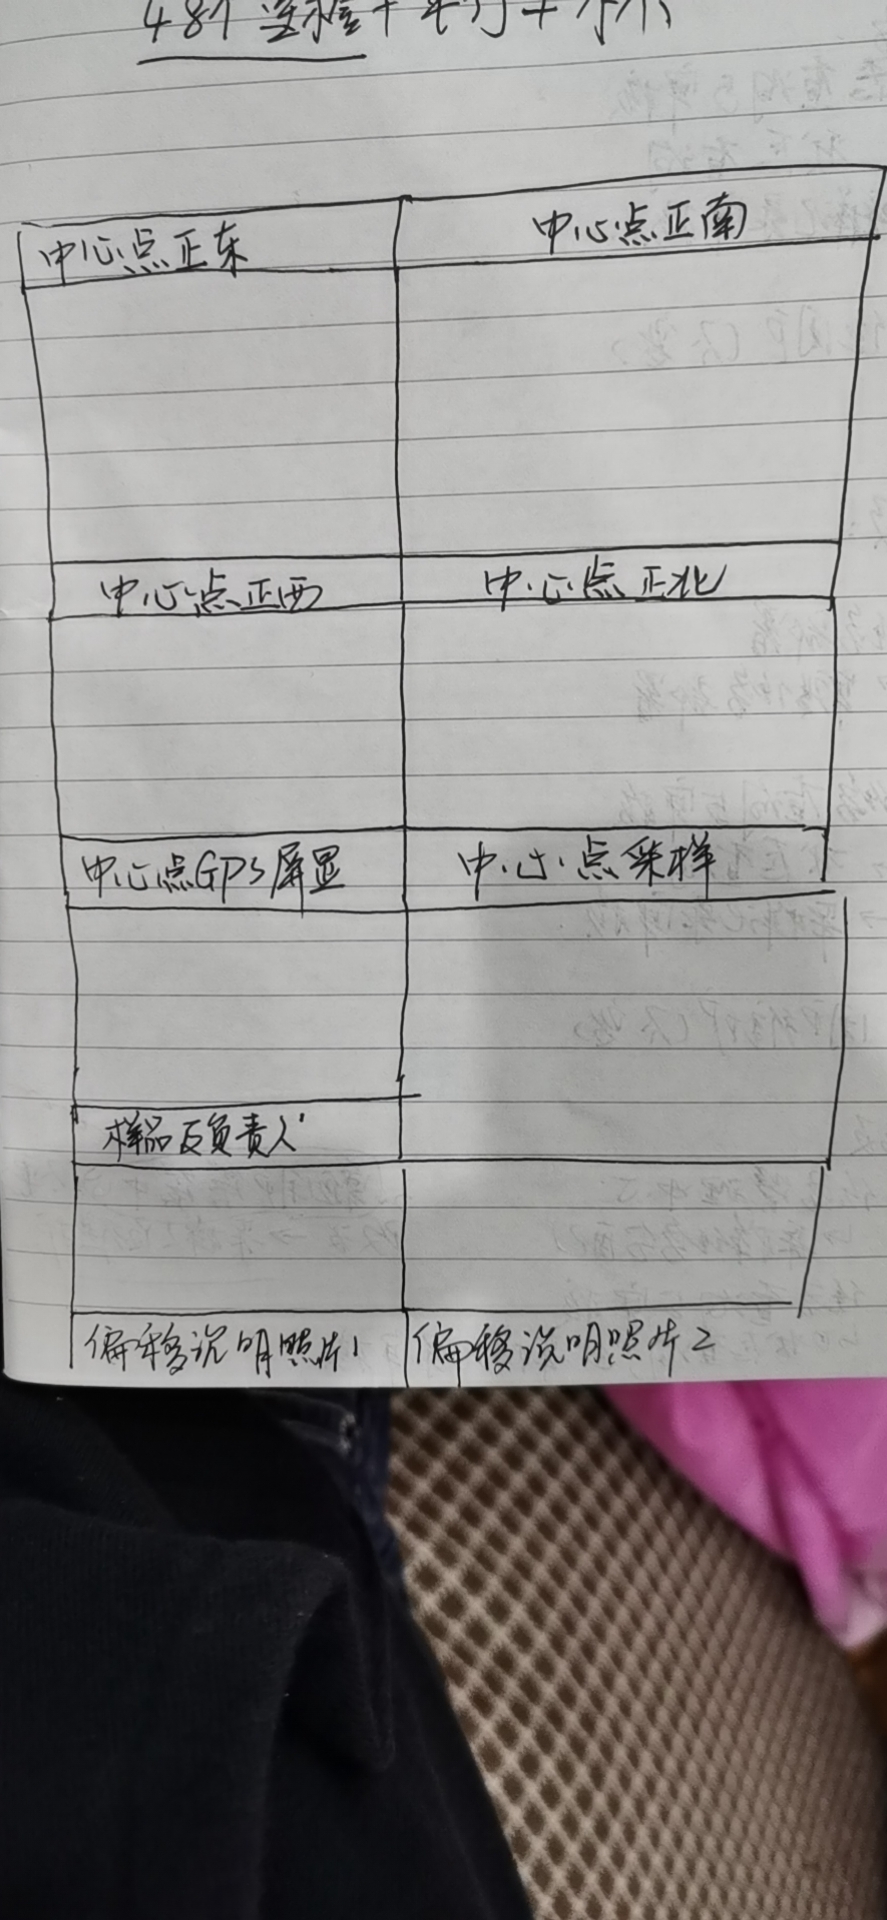 中心点正东 中心点正南
中心点正西 中心点正北
中心点GPS屏显 中心点采样
样品及负责人
偏移说明照片1 偏移说明照片2